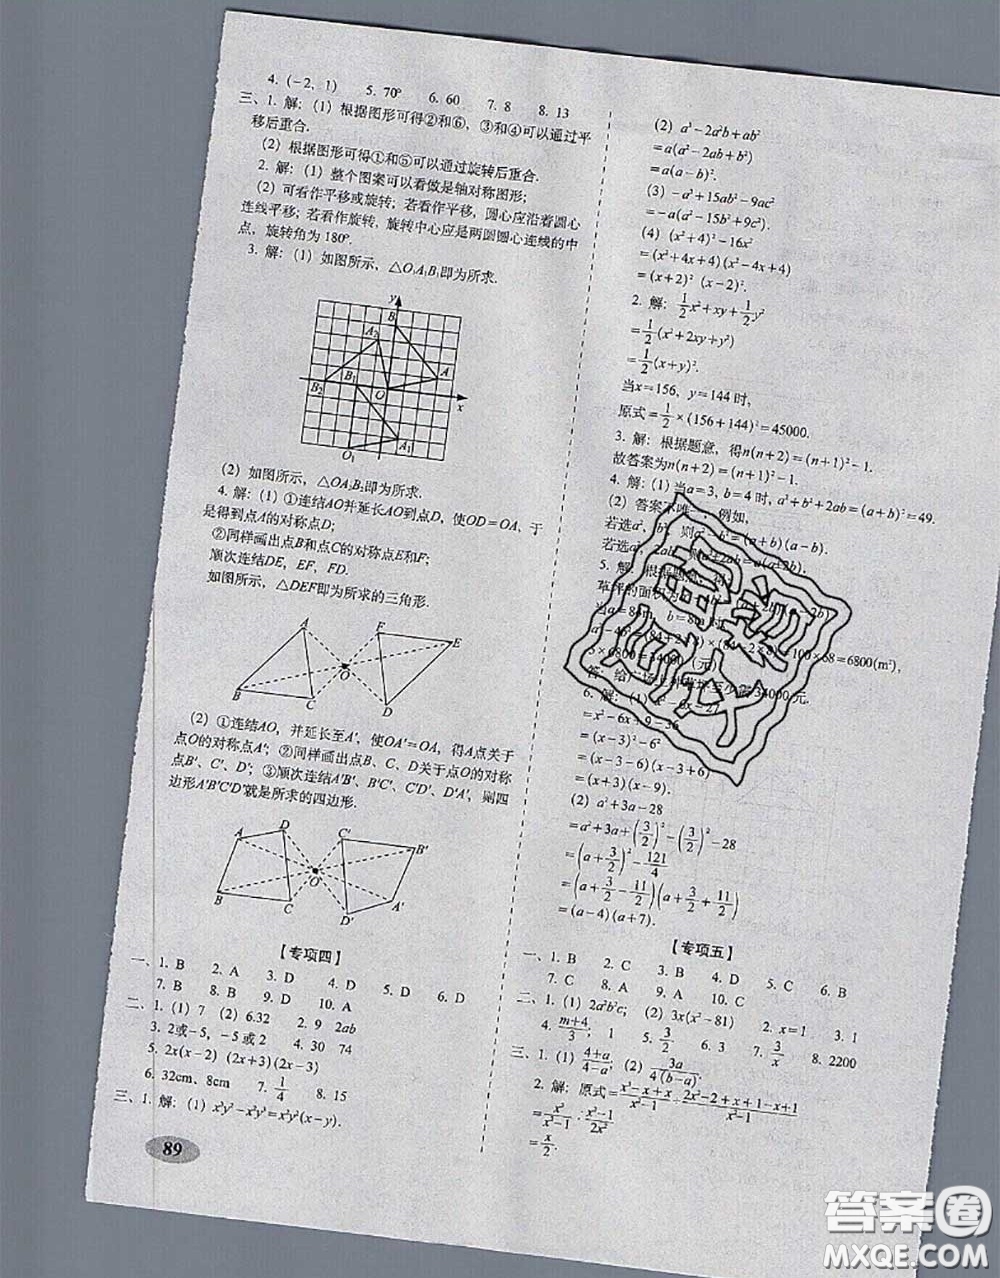 4. (-2, 1)  5. 70°  6. 60  7. 8  8. 13
三、1. 解: (1) 根据图形可得②和⑥, ③和④可以通过平
移后重合.
(2) 根据图形可得①和⑤可以通过旋转后重合.
2. 解: (1) 整个图案可以看做是轴对称图形;
(2) 可看作平移或旋转; 若看作平移, 圆心应沿着圆心
连线平移; 若看作旋转, 旋转中心应是两圆圆心连线的中
点, 旋转角为 180°.
3. 解: (1) 如图所示, △O₁A₁B₁即为所求.
y
B
A₂
A
B₂ B₁
O
x
O₁ A₁
(2) 如图所示, △OA₂B₂即为所求.
4. 解: (1) ①连结AO并延长AO到点D, 使OD=OA, 于
是得到点A的对称点D;
②同样画出点B和点C的对称点E和F;
顺次连结DE, EF, FD.
如图所示, △DEF即为所求的三角形.
A F E
O
B C D
(2) ①连结AO, 并延长至A', 使OA'=OA, 得A点关于
点O的对称点A'; ②同样画出点B、C、D关于点O的对称
点B'、C'、D'; ③顺次连结A'B'、B'C'、C'D'、D'A', 则四
边形A'B'C'D'就是所求的四边形.
A D C' B'
O
B C D' A'
【专项四】
一、1. B  2. A  3. D  4. D  5. D  6. D
7. B  8. B  9. D  10. A
二、1. (1) 7  (2) 6.32  2. 9  2ab
3. 2或-5, -5或2  4. 30  74
5. 2x(x-2)  (2x+3)(2x-3)
6. 32cm、8cm  7. 1/4  8. 15
三、1. 解: (1) x³y²-x²y³=x²y²(x-y).
89
(2) a³-2a²b+ab²
=a(a²-2ab+b²)
=a(a-b)².
(3) -a³+15ab²-9ac²
=-a(a²-15b²+9c²).
(4) (x²+4)²-16x²
=(x²+4x+4)(x²-4x+4)
=(x+2)² (x-2)².
2. 解: 1/2x²+xy+1/2y²
=1/2(x²+2xy+y²)
=1/2(x+y)².
当x=156, y=144时,
原式=1/2×(156+144)²=45000.
3. 解: 根据题意, 得n(n+2)=(n+1)²-1.
故答案为n(n+2)=(n+1)²-1.
4. 解: (1) 当a=3, b=4时, a²+b²+2ab=(a+b)²=49.
(2) 答案不唯一, 例如,
若选a², b², 则a²-b²=(a+b)(a-b).
若选a², 2ab, 则a²+2ab=a(a+2b).
5. 解: 根据题意, 得
草坪的面积为
当a=84m, b=8m时,
a²-4b²=(84+2×8)×(84-2×8)=100×68=6800(m²),
5×6800=34000 (元)
34000元.
6. 解: (1) x²-6x-27
=x²-6x+9-36
=(x-3)²-6²
=(x-3-6)(x-3+6)
=(x+3)(x-9).
(2) a²+3a-28
=a²+3a+(3/2)²-(3/2)²-28
=(a+3/2)²-121/4
=(a+3/2-11/2)(a+3/2+11/2)
=(a-4)(a+7).
【专项五】
一、1. B  2. C  3. B  4. D  5. C  6. B
7. C  8. C  9. A  10. C
二、1. (1) 2a²b²c;  (2) 3x(x²-81)  2. x=1  3. 1
4. (m+4)/3; 1  5. 3/2  6. 3  7. 3/x  8. 2200
三、1. (1) (4+a)/(4-a);  (2) 3a/4(b-a).
2. 解: 原式=(x³-x+x)/(x²-1)÷(2x²-2+x+1-x+1)/(x²-1)
=x³/(x²-1)·(x²-1)/2x²
=x/2.
答案圈
MXQE.COM